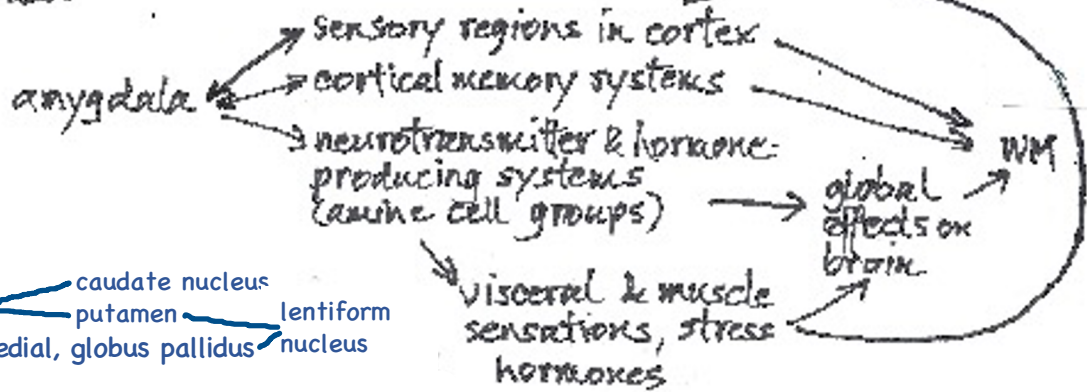 sensory regions in cortex
cortical memory systems
amygdala
neurotransmitter & hormone-
producing systems
(amine cell groups)
WM
global
effects on
brain
visceral & muscle
sensations, stress
hormones
caudate nucleus
putamen
lentiform
nucleus
edial, globus pallidus